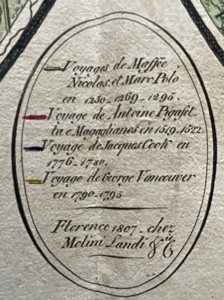 Voyages de Maffée
Nicolas, et Marc Polo
en 1250-1269-1295.
Voyage de Antoine Pigafet
ta e Magaglianes en 1519-1522.
Voyage de Jacques Cook en
1776-1780.
Voyage de George Vancouver
en 1790-1795
Florence 1807. chez
Molini Landi & C.